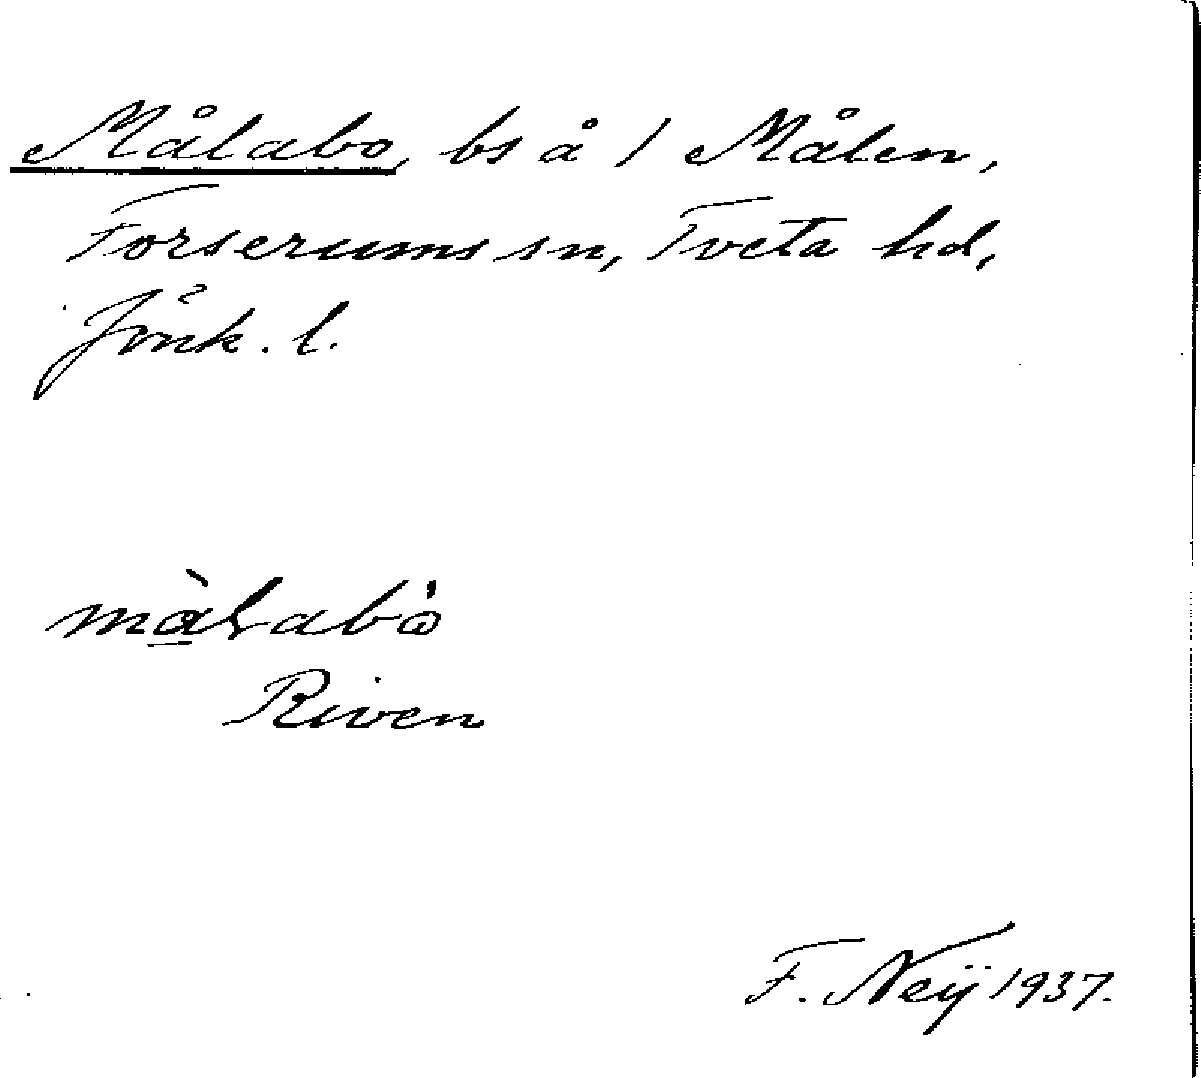 Målabo, bs å 1 Målen,
Forserums sn, Tveta hd,
Jönk. l.
màlabo
Riven
F. Neij 1937.